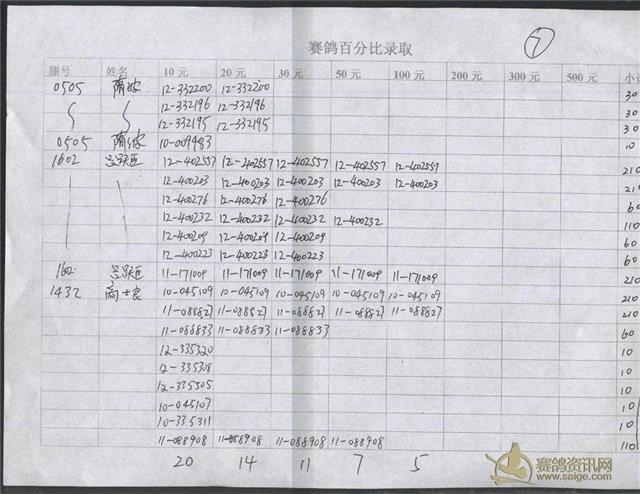 赛鸽百分比录取 7
棚号 姓名 10元 20元 30元 50元 100元 200元 300元 500元 小计
0505 12-332200 12-332200 30
12-332196 12-332196 30
12-332195 12-332195 30
0505 10-009483 10
1602 12-402557 12-402557 12-402557 12-402557 12-402557 210
12-400203 12-400203 12-400203 12-400203 12-400203 210
12-400276 12-400276 12-400276 60
12-400232 12-400232 12-400232 12-400232 110
12-400209 12-400209 12-400209 60
12-400223 12-400223 12-400223 60
160 11-171009 11-171009 11-171009 11-171009 11-171009 210
1432 10-045109 10-045109 10-045109 10-045109 10-045109 210
11-088827 11-088827 11-088827 11-088827 11-088827 210
11-088833 11-088833 11-088833 60
12-335320 10
12-335308 10
12-335305 10
10-045107 10
10-335311 10
11-088908 11-088908 11-088908 11-088908 110
20 14 11 7 5
赛鸽资讯网
www.saige.com